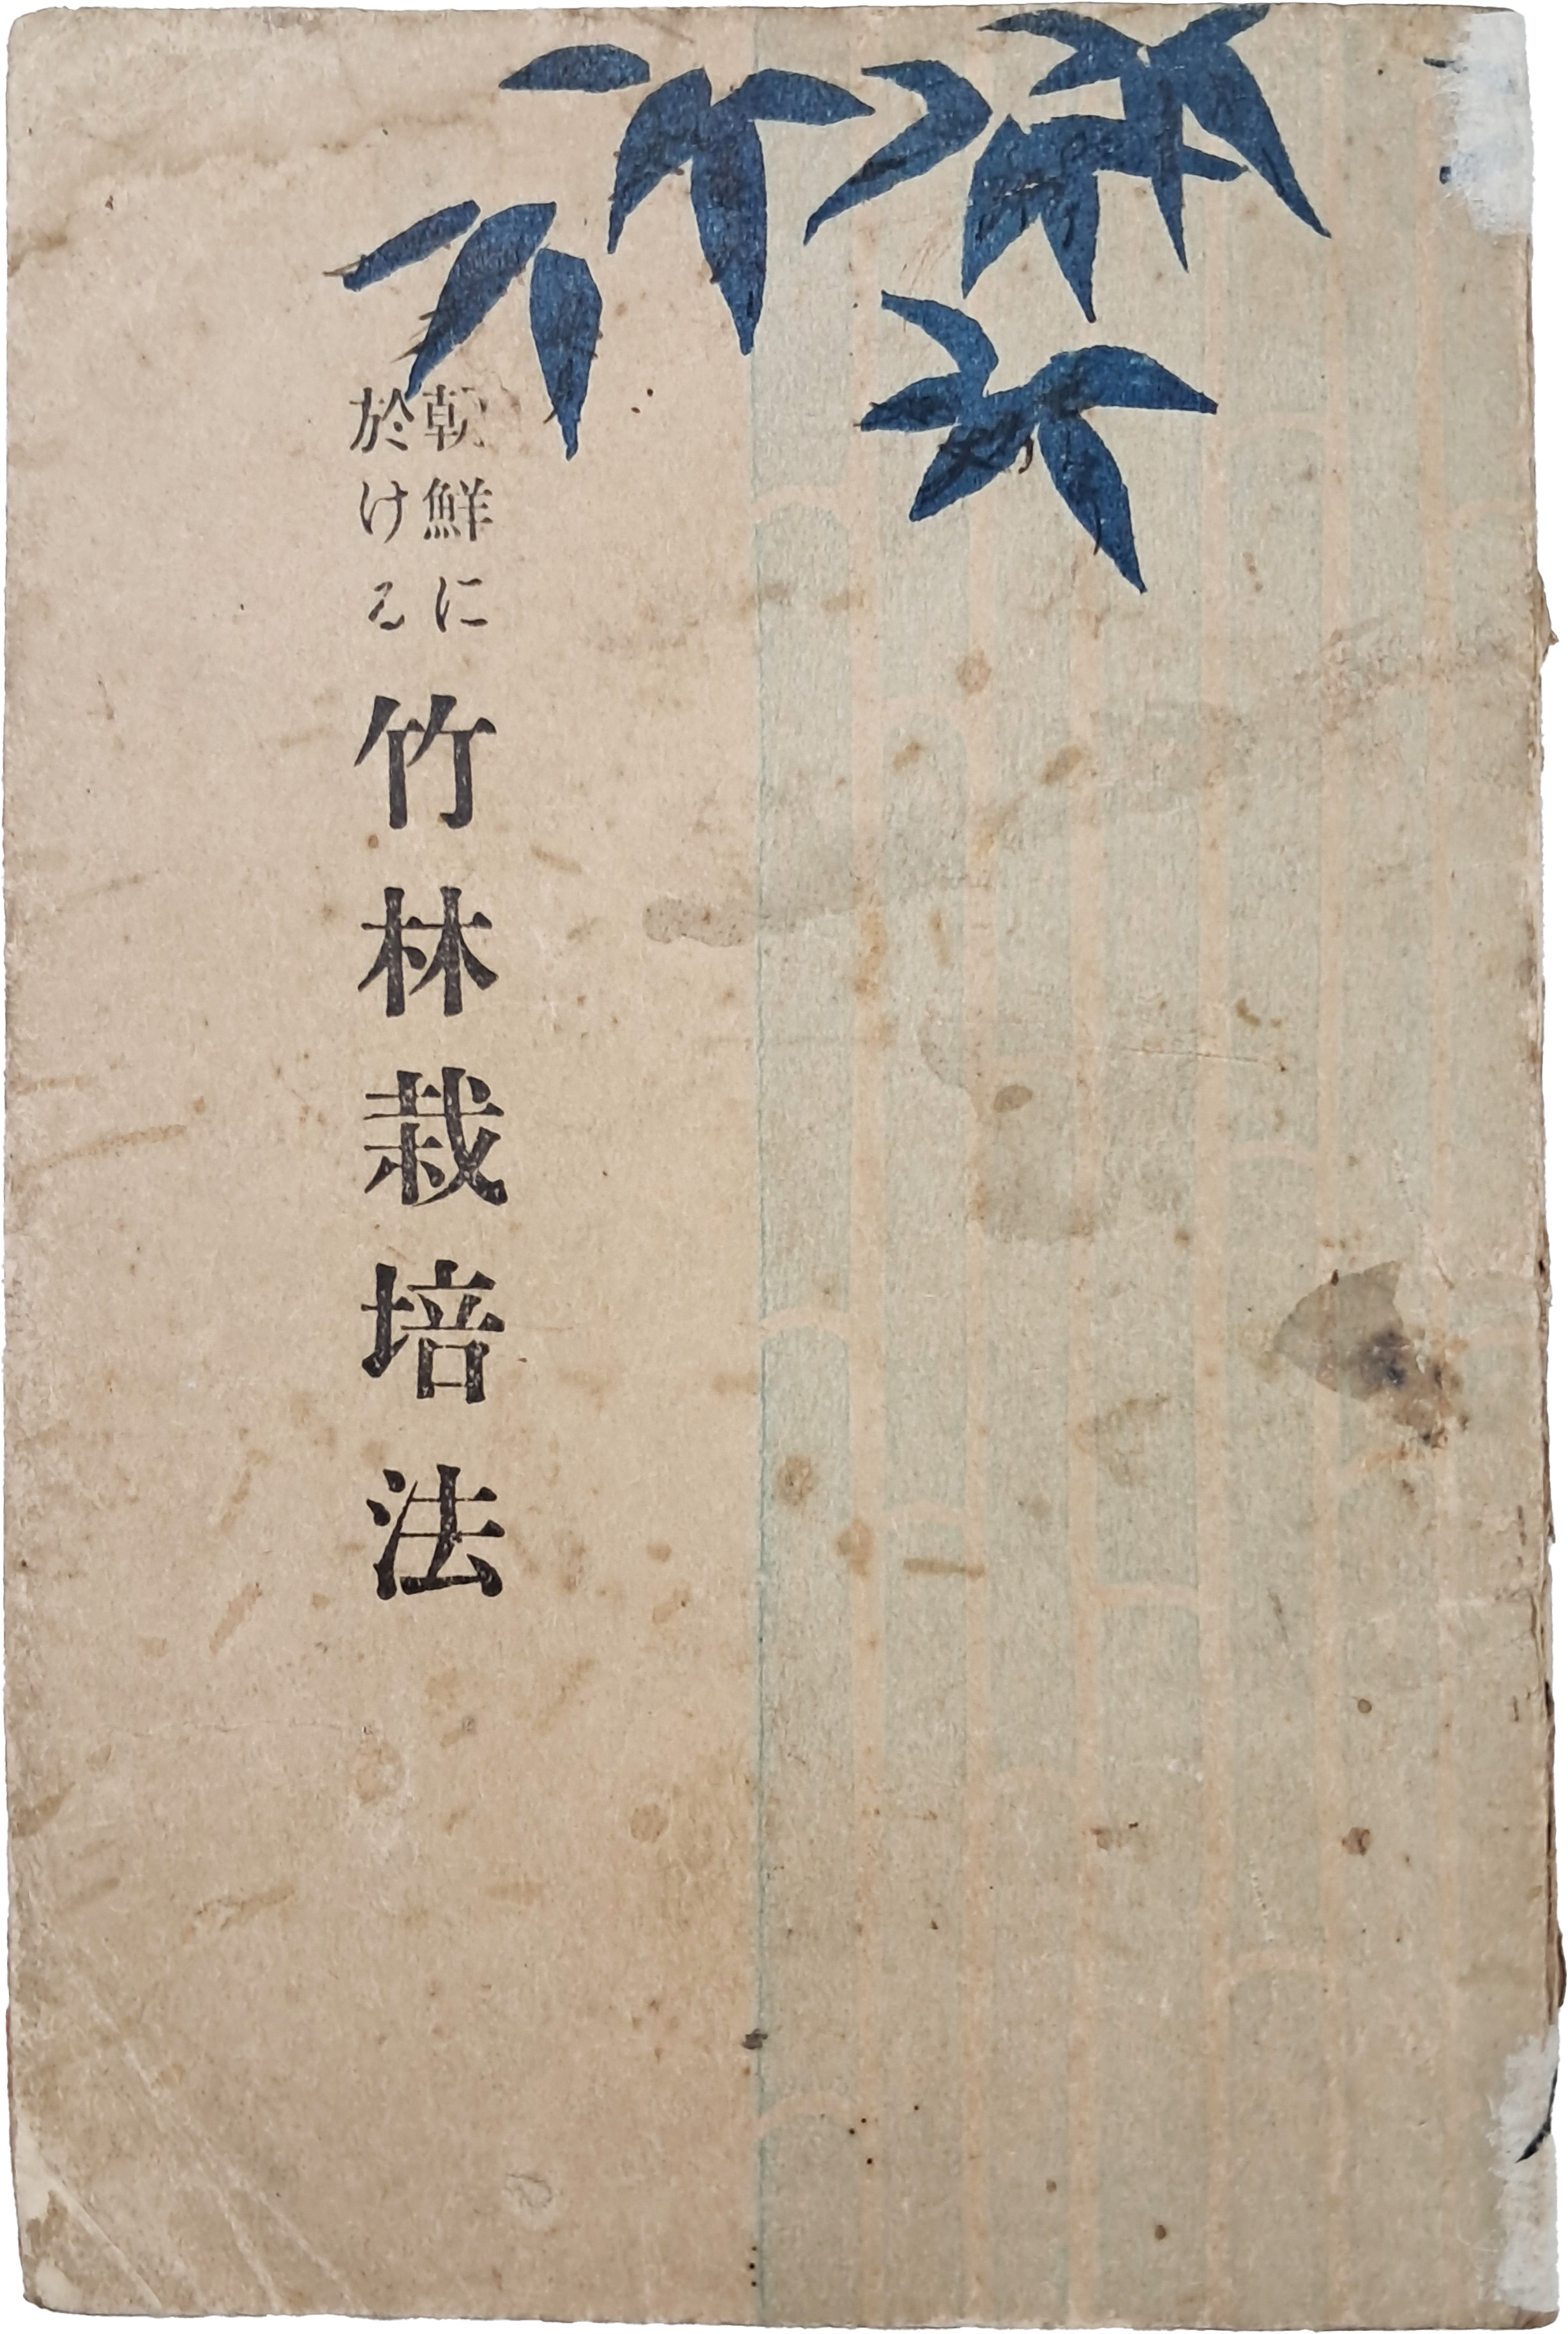 朝鮮に
於ける
竹林栽培法